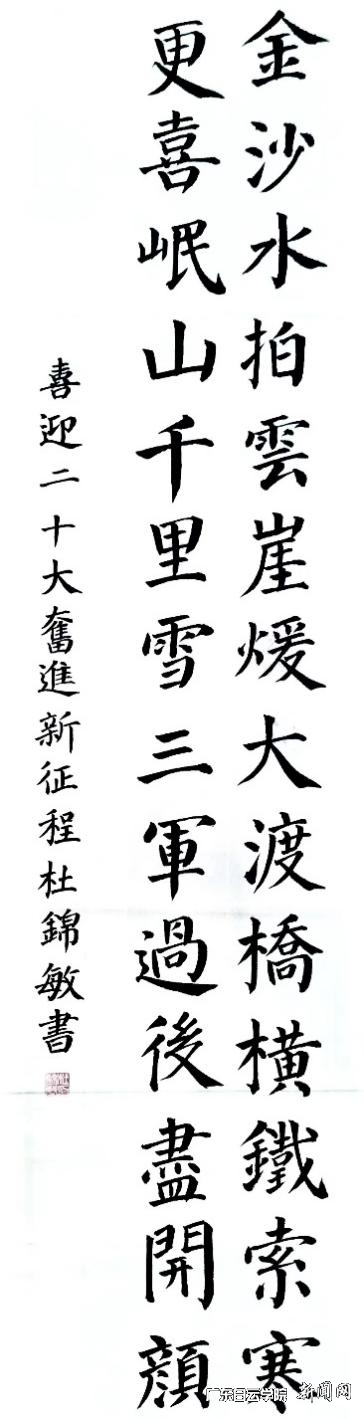 金沙水拍雲崖煖大渡橋橫鐵索寒
更喜岷山千里雪三軍過後盡開顏
喜迎二十大奮進新征程杜錦敏書
广东白云学院 新闻网